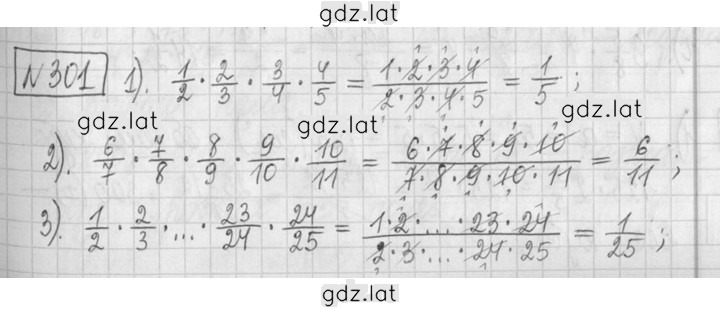 gdz.lat
№301 1). 1/2 · 2/3 · 3/4 · 4/5 = 1·2·3·4/2·3·4·5 = 1/5 ;
gdz.lat gdz.lat
2). 6/7 · 7/8 · 8/9 · 9/10 · 10/11 = 6·7·8·9·10/7·8·9·10·11 = 6/11 ;
gdz.lat gdz.lat
3). 1/2 · 2/3 · ... · 23/24 · 24/25 = 1·2·...·23·24/2·3·...·24·25 = 1/25 ;
gdz.lat